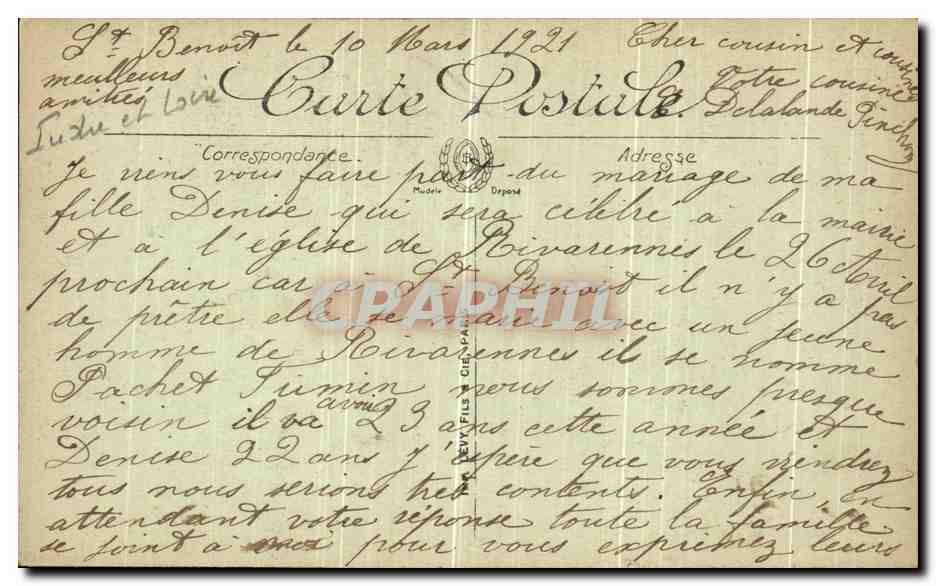 St Benoit le 10 Mars 1921 Cher cousin et cousines
Je viens vous faire part du mariage de ma
fille Denise qui sera célébré à la mairie
et à l'église de Rivarennes le 26 Avril
prochain car à St Benoit il n'y a pas
de prêtre elle se marie avec un jeune
homme de Rivarennes ils se nomme
Pachet Firmin nous sommes presque
voisin il va avoir 23 ans cette année et
Denise 22 ans j'espère que vous viendrez
tous nous serions très contents. Enfin en
attendant votre réponse toute la famille
se joint à moi pour vous exprimez leurs
meulleurs
amitiés
Votre cousine
Delalande Pinchon
Indre et Loire
Carte Postale
Correspondance
Adresse
Modèle Déposé
LEVY, FILS & CIE, PA
CPAPHIL